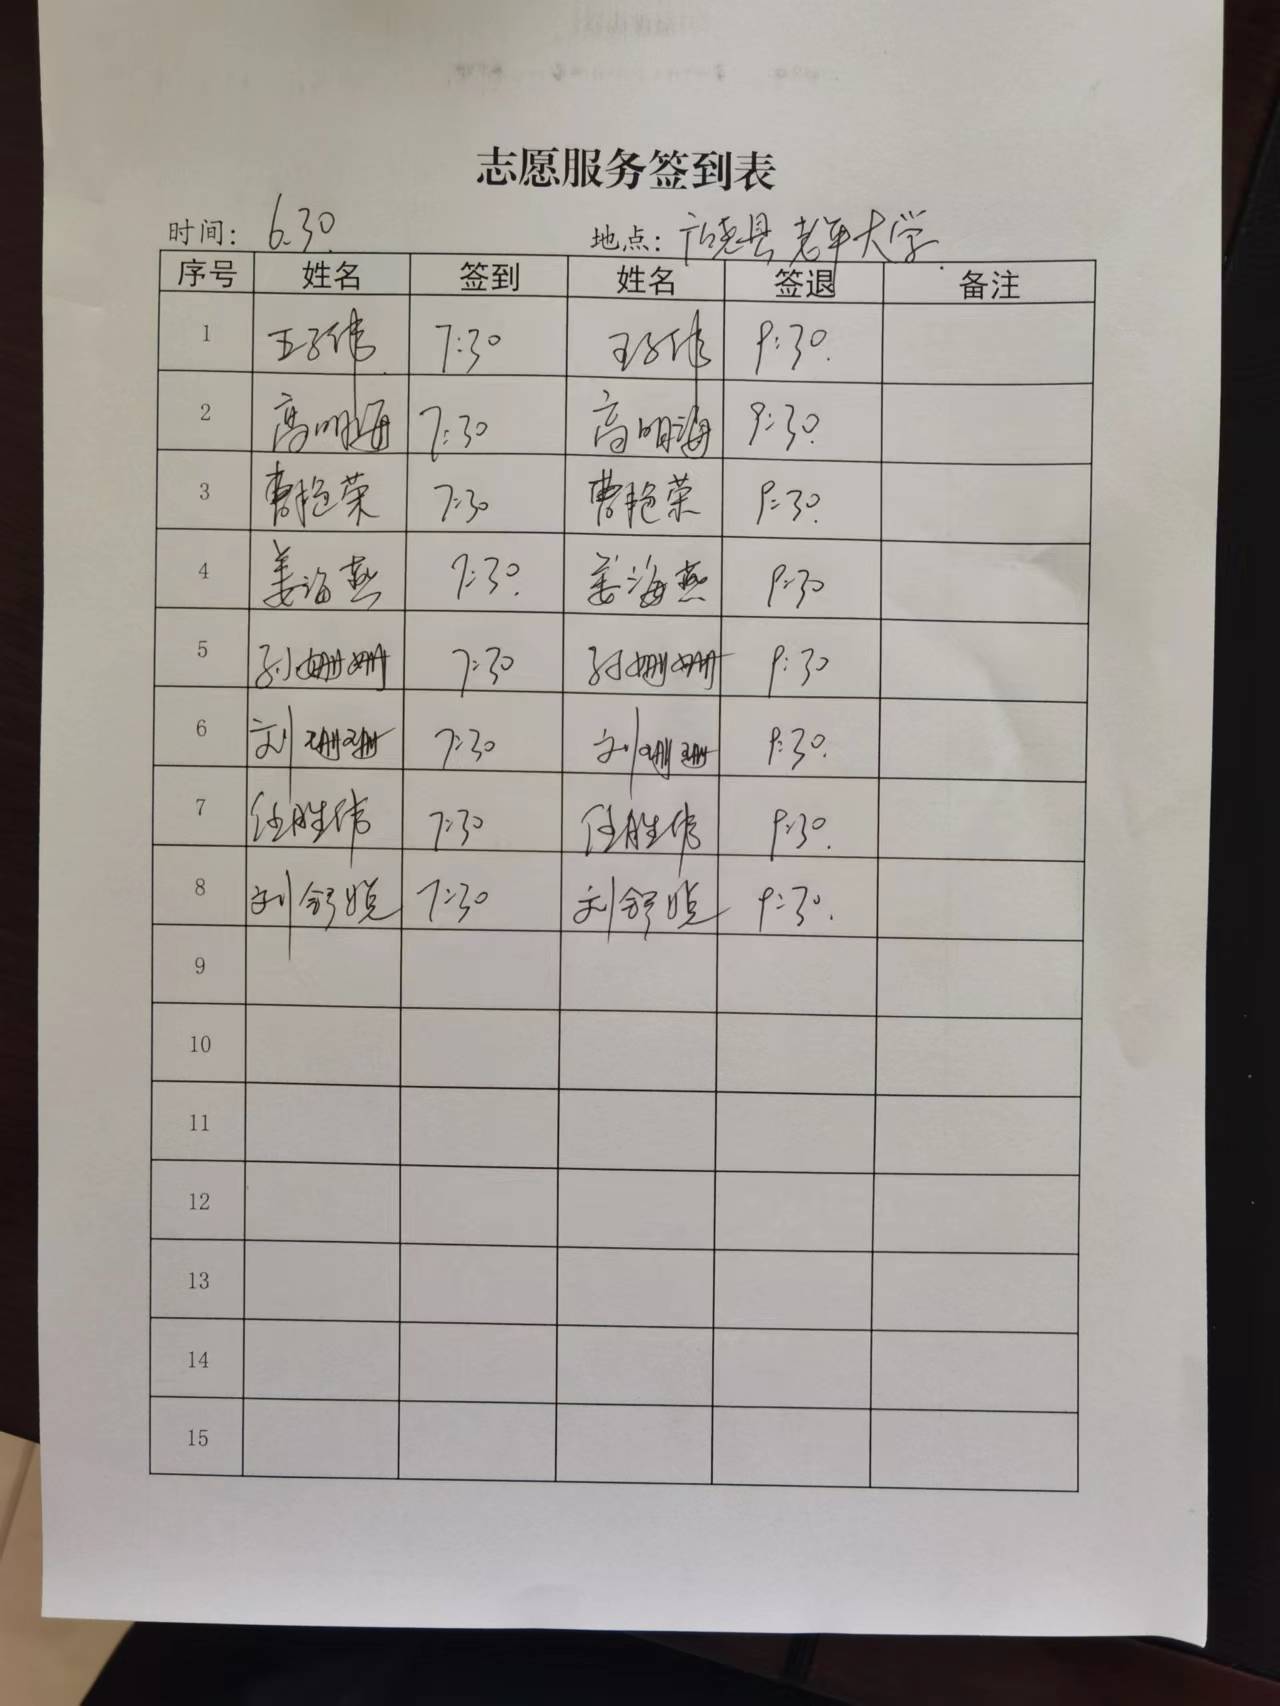 志愿服务签到表
时间: 6.30. 地点: 广饶县老年大学.
序号 姓名 签到 姓名 签退 备注
1 王子伟 7:30 王子伟 9:30.
2 高明海 7:30 高明海 9:30.
3 曹艳荣 7:30 曹艳荣 9:30.
4 姜海燕 7:30. 姜海燕 9:30
5 孙姗姗 7:30 孙姗姗 9:30
6 刘珊珊 7:30 刘珊珊 9:30.
7 任胜伟 7:30 任胜伟 9:30.
8 刘舒 7:30 刘舒 9:30.
9
10
11
12
13
14
15